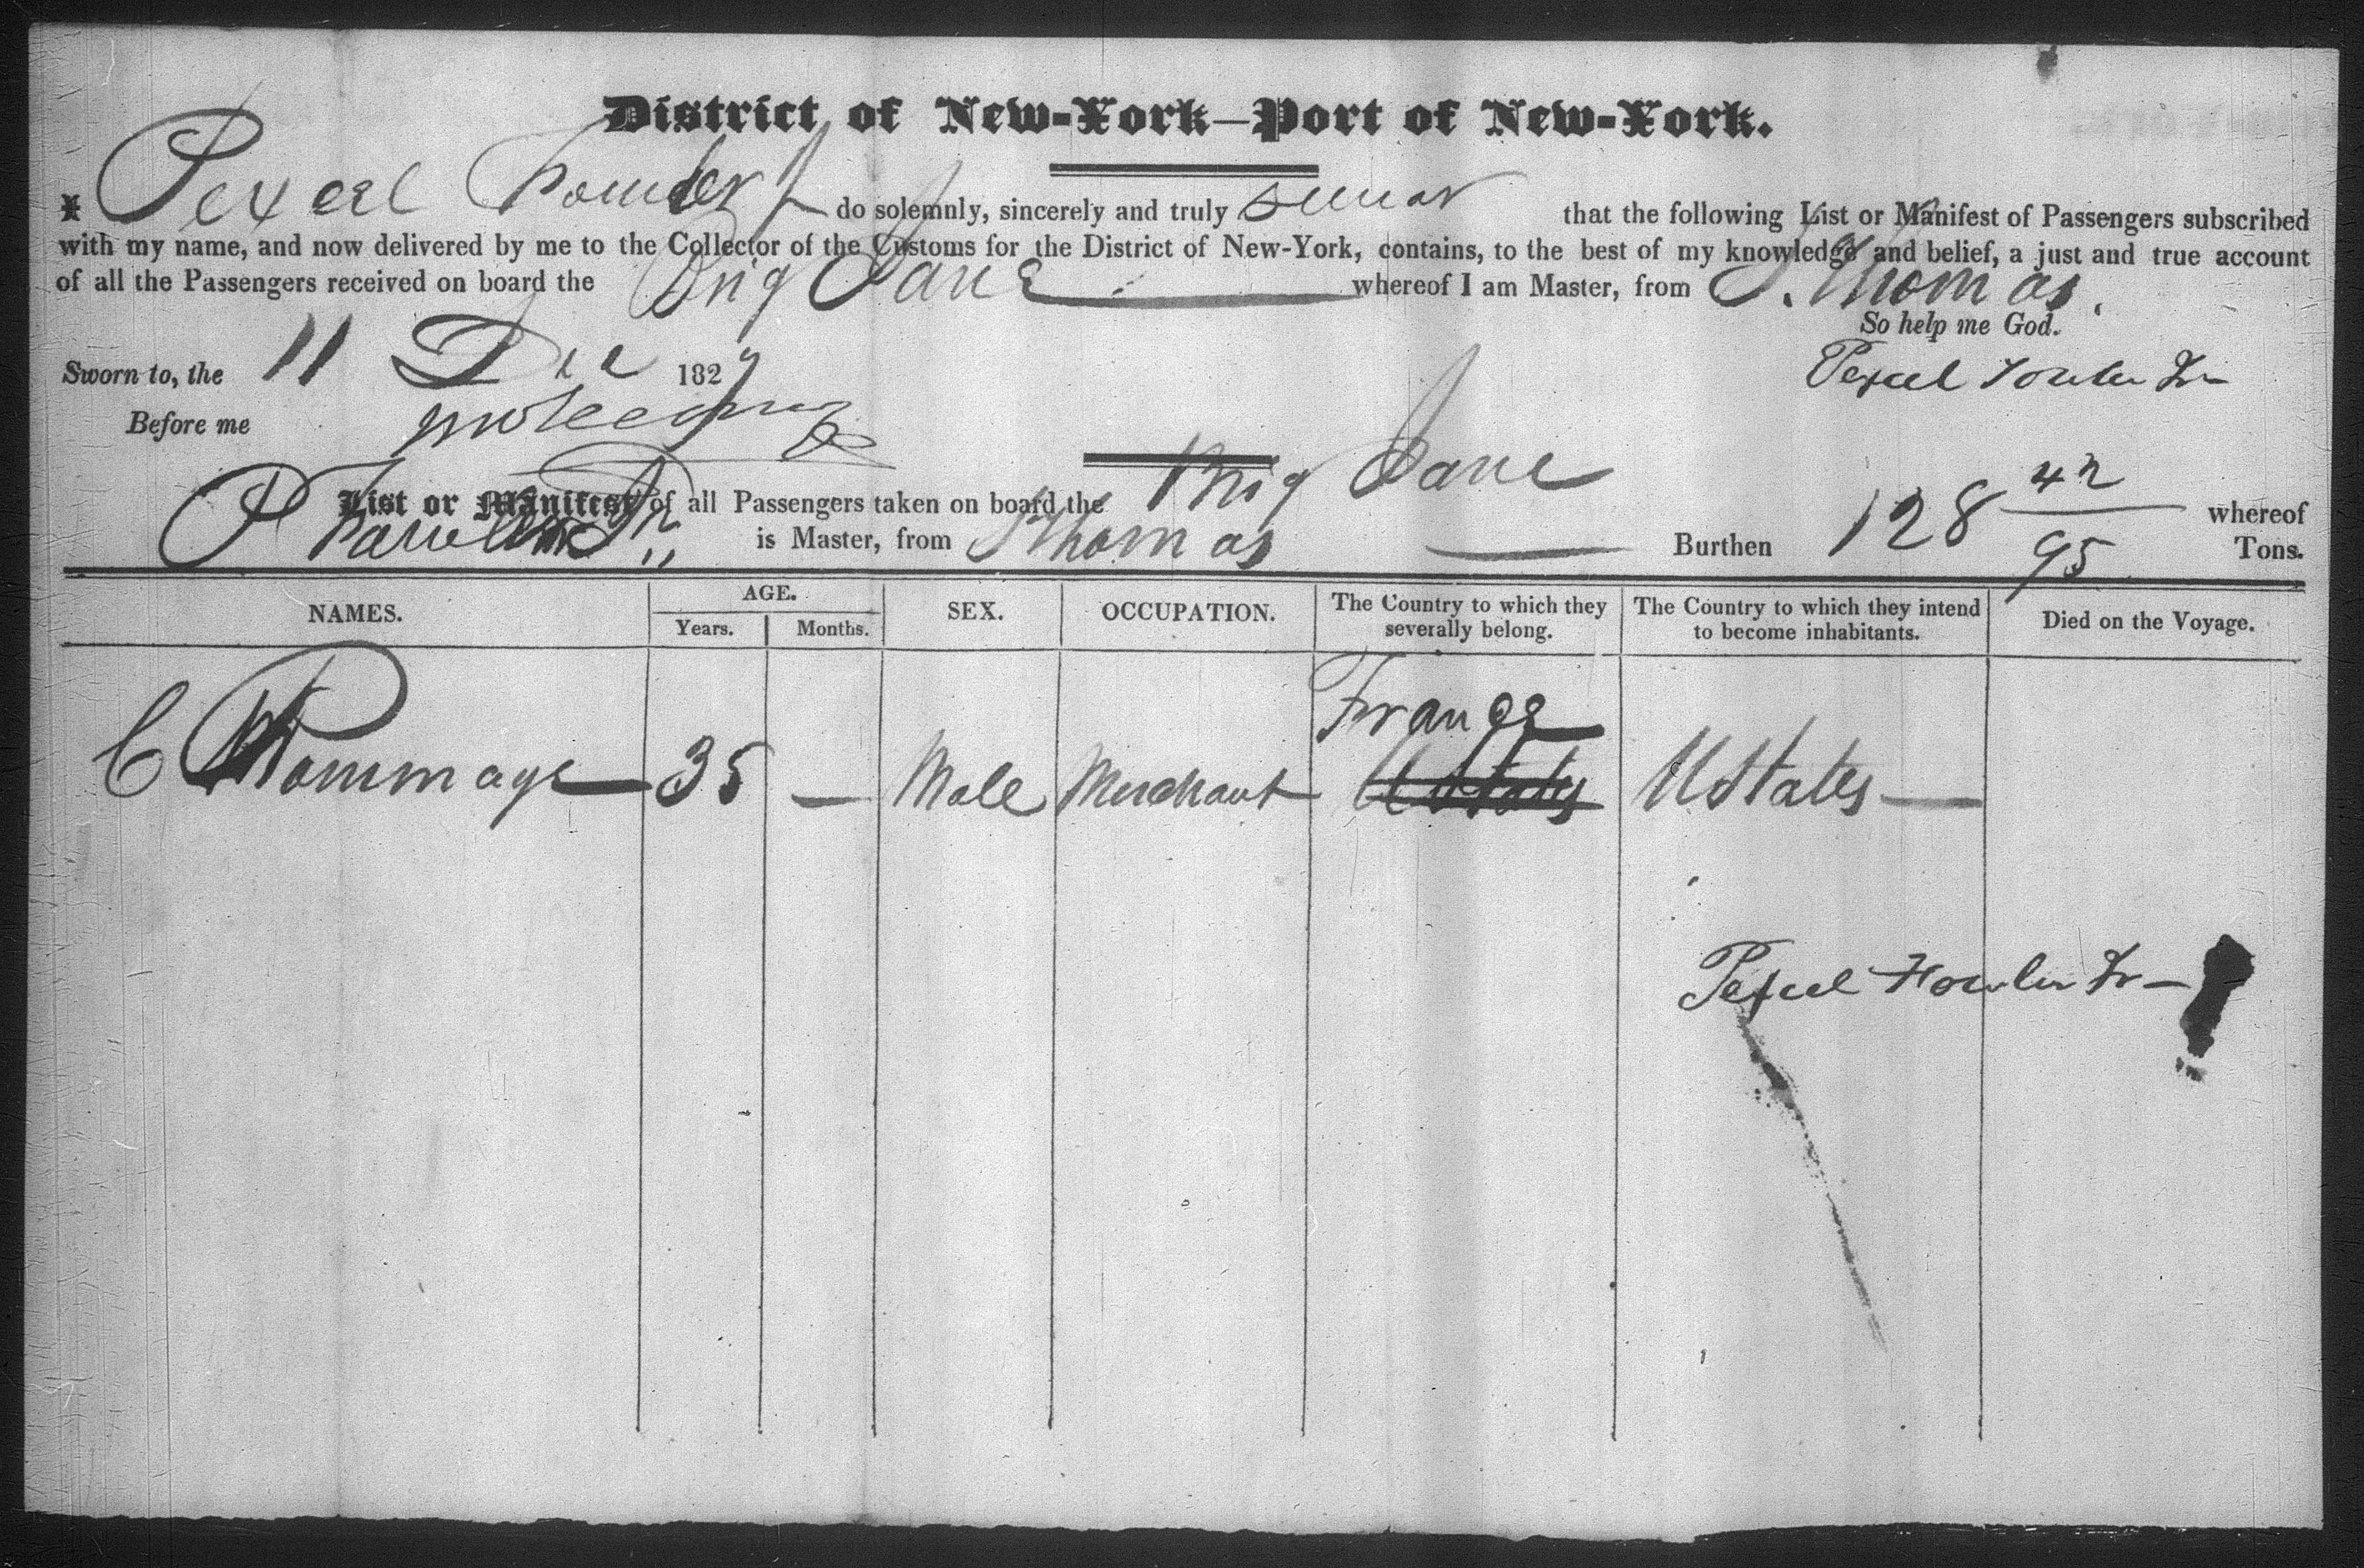 District of New-York—Port of New-York.
I Pexcel Fowler Jr do solemnly, sincerely and truly swear that the following List or Manifest of Passengers subscribed
with my name, and now delivered by me to the Collector of the Customs for the District of New-York, contains, to the best of my knowledge and belief, a just and true account
of all the Passengers received on board the Brig Jane whereof I am Master, from St. Thomas.
So help me God.
Sworn to, the 11 Dec 1827
Pexcel Fowler Jr
Before me
List or Manifest of all Passengers taken on board the Brig Jane whereof
P Fowler Jr is Master, from St Thomas Burthen 128 42/95 Tons.
NAMES. AGE. SEX. OCCUPATION. The Country to which they severally belong. The Country to which they intend to become inhabitants. Died on the Voyage.
Years. Months.
France
C Pommage 35 — Male Merchant U States U States —
Pexcel Fowler Jr